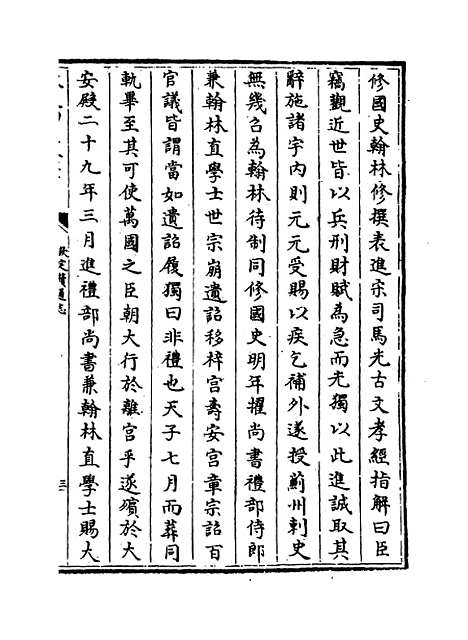 修國史翰林修撰表進宋司馬光古文孝經指解曰臣
竊觀近世皆以兵刑財賦為急而光獨以此進誠取其
辭施諸宇內則元元受賜以疾乞補外遂授薊州刺史
無幾召為翰林待制同修國史明年擢尚書禮部侍郎
兼翰林直學士世宗崩遺詔移梓宫壽安宫章宗詔百
官議皆謂當如遺詔履獨曰非禮也天子七月而葬同
軌畢至其可使萬國之臣朝大行於離宫乎遂殯於大
安殿二十九年三月進禮部尚書兼翰林直學士賜大
欽定續通志
三